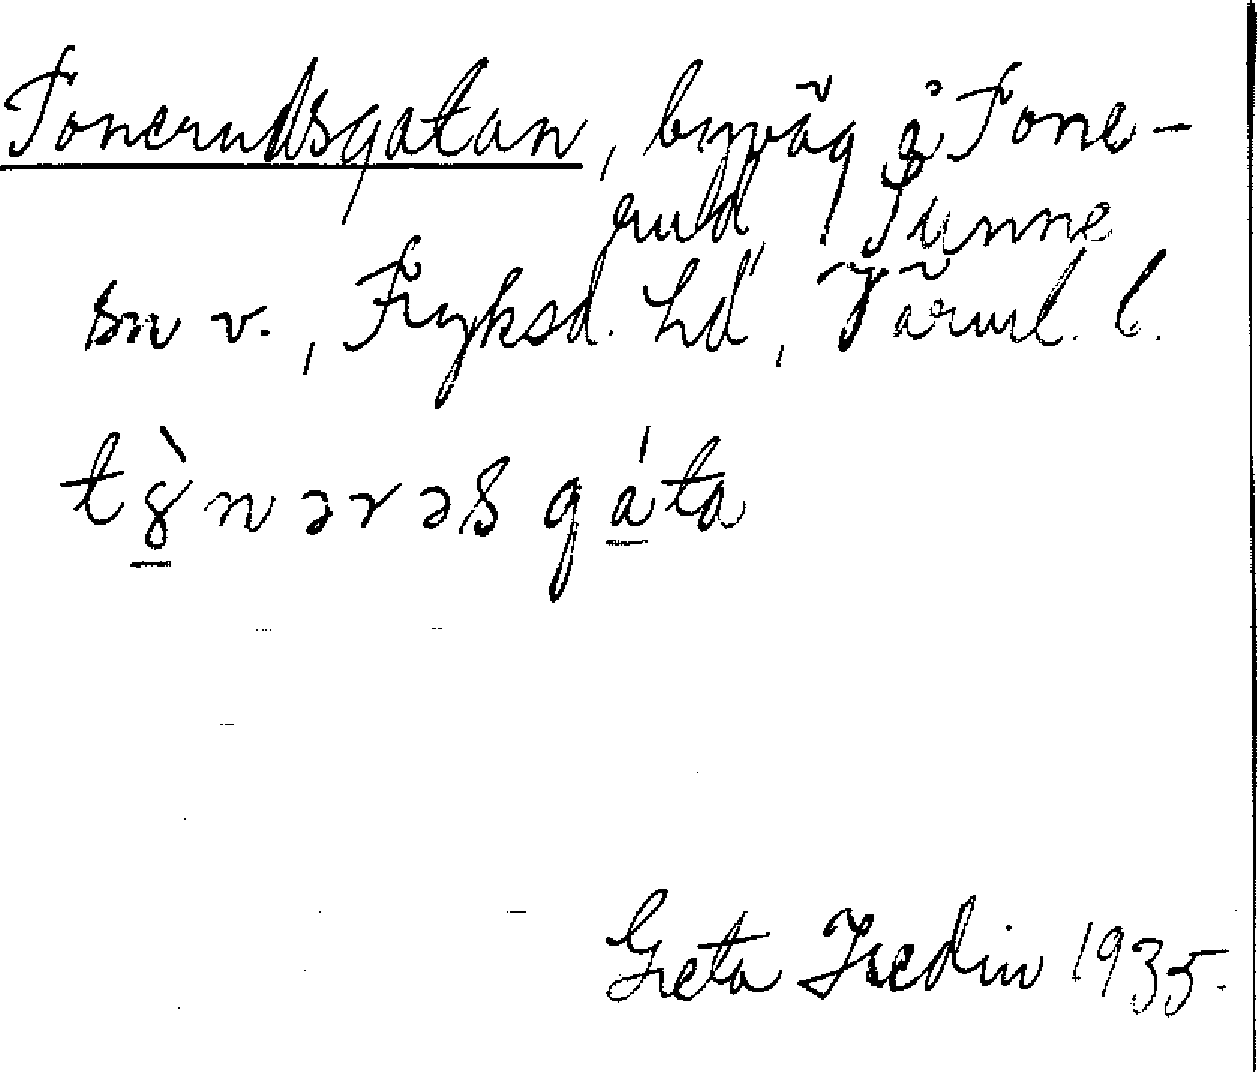 Tonerudsgatan, byväg å Tone-
rud, Sunne
sn v., Fryksd. hd, Värml. l.
tȣ̀nərəs gáta
Greta Hedin 1935.